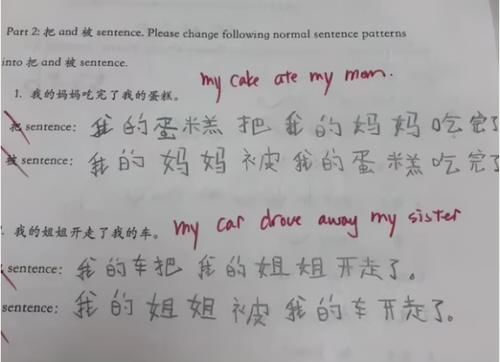 Part 2: 把 and 被 sentence. Please change following normal sentence patterns
into 把 and 被 sentence.
my cake ate my mom.
1. 我的妈妈吃完了我的蛋糕。
把 sentence: 我的蛋糕把我的妈妈吃完了
被 sentence: 我的妈妈被我的蛋糕吃完
my car drove away my sister
我的姐姐开走了我的车。
sentence: 我的车把我的姐姐开走了。
sentence: 我的姐姐被我的车开走了。